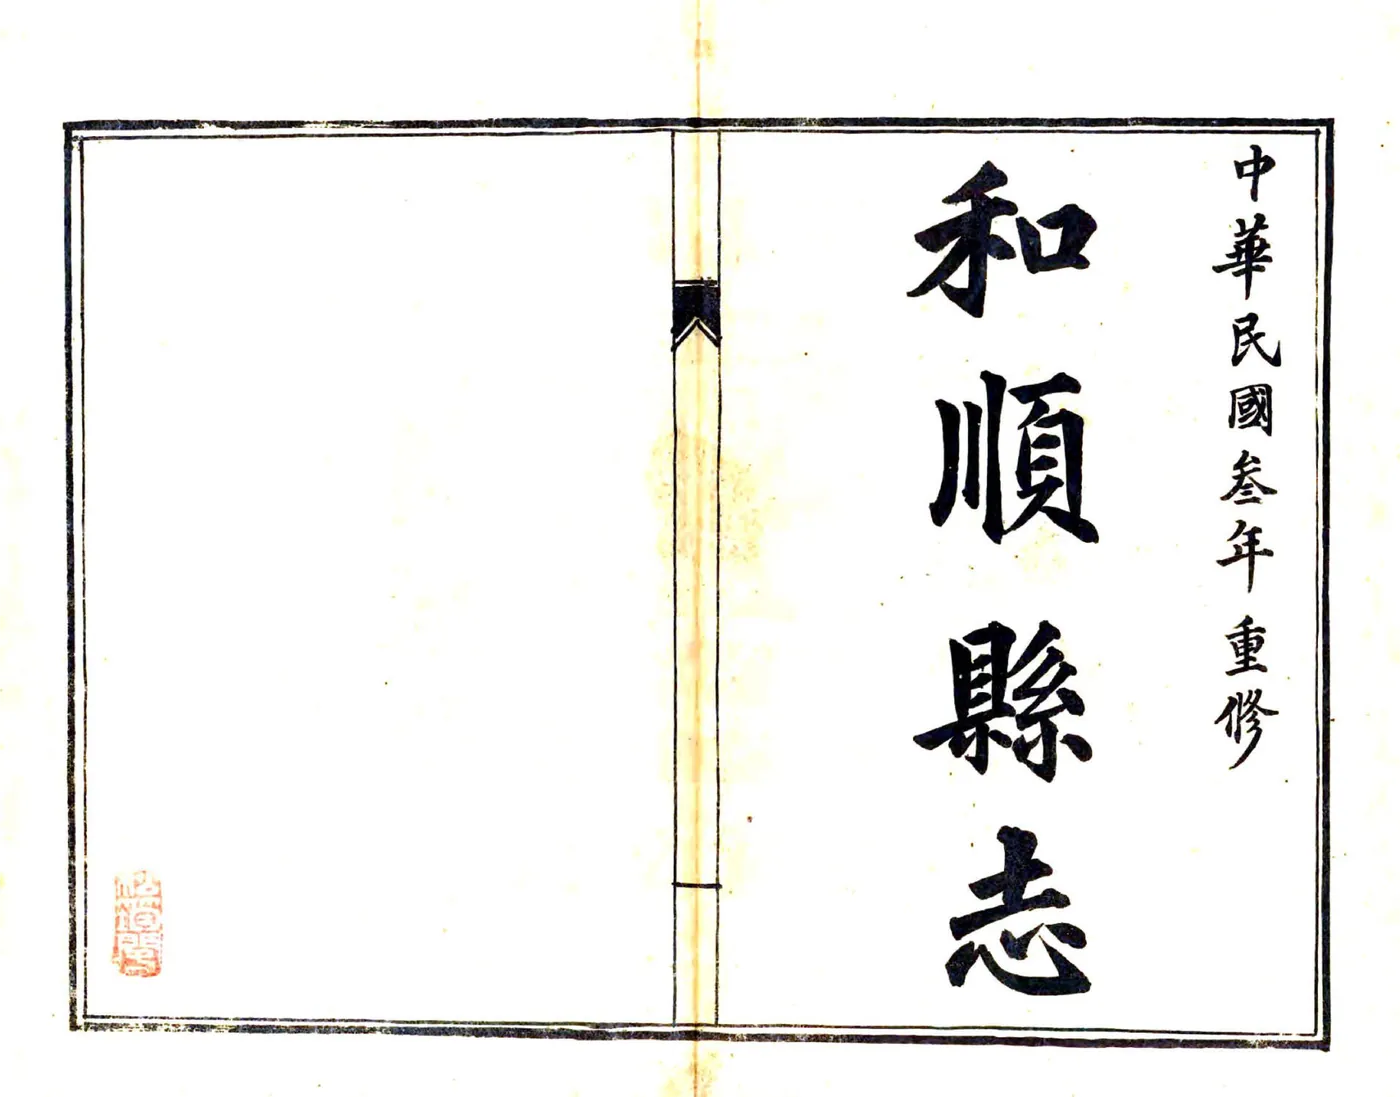 中華民國叁年重修
和順縣志